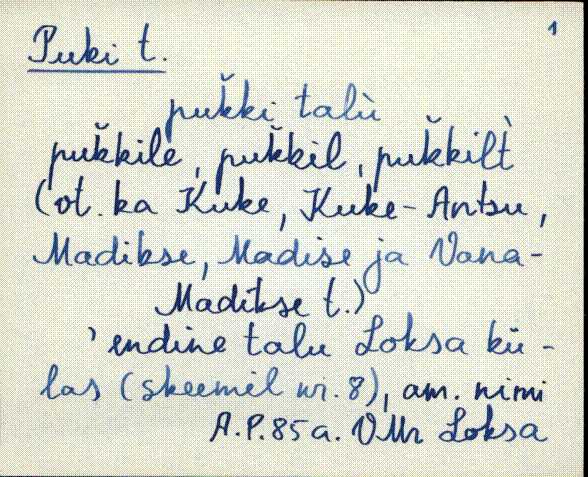 1
Puki t.
puk̆ki talù
puk̆kile, puk̆kil, puk̆kilt̀
(ot. ka Kuke, Kuke-Antsu,
Madikse, Madise ja Vana-
Madikse t.)
'endine talu Loksa kü-
las (skeemil nr. 8), am. nimi
A.P. 85 a. VMr Loksa